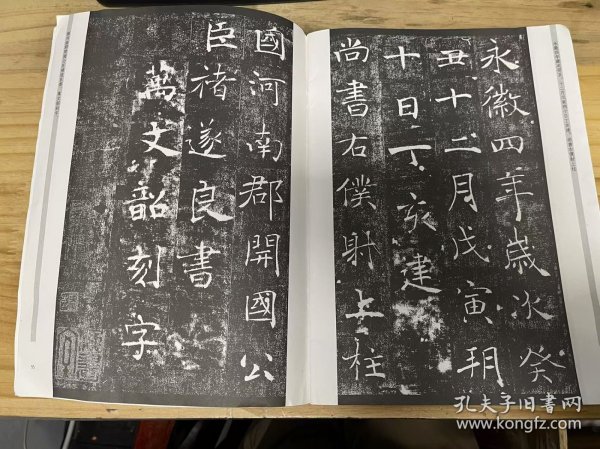 永徽四年歲次癸
丑十二月戊寅朔
十日丁亥建
尚書右僕射上柱
國河南郡開國公
臣褚遂良書
萬文韶刻字
孔夫子旧書网